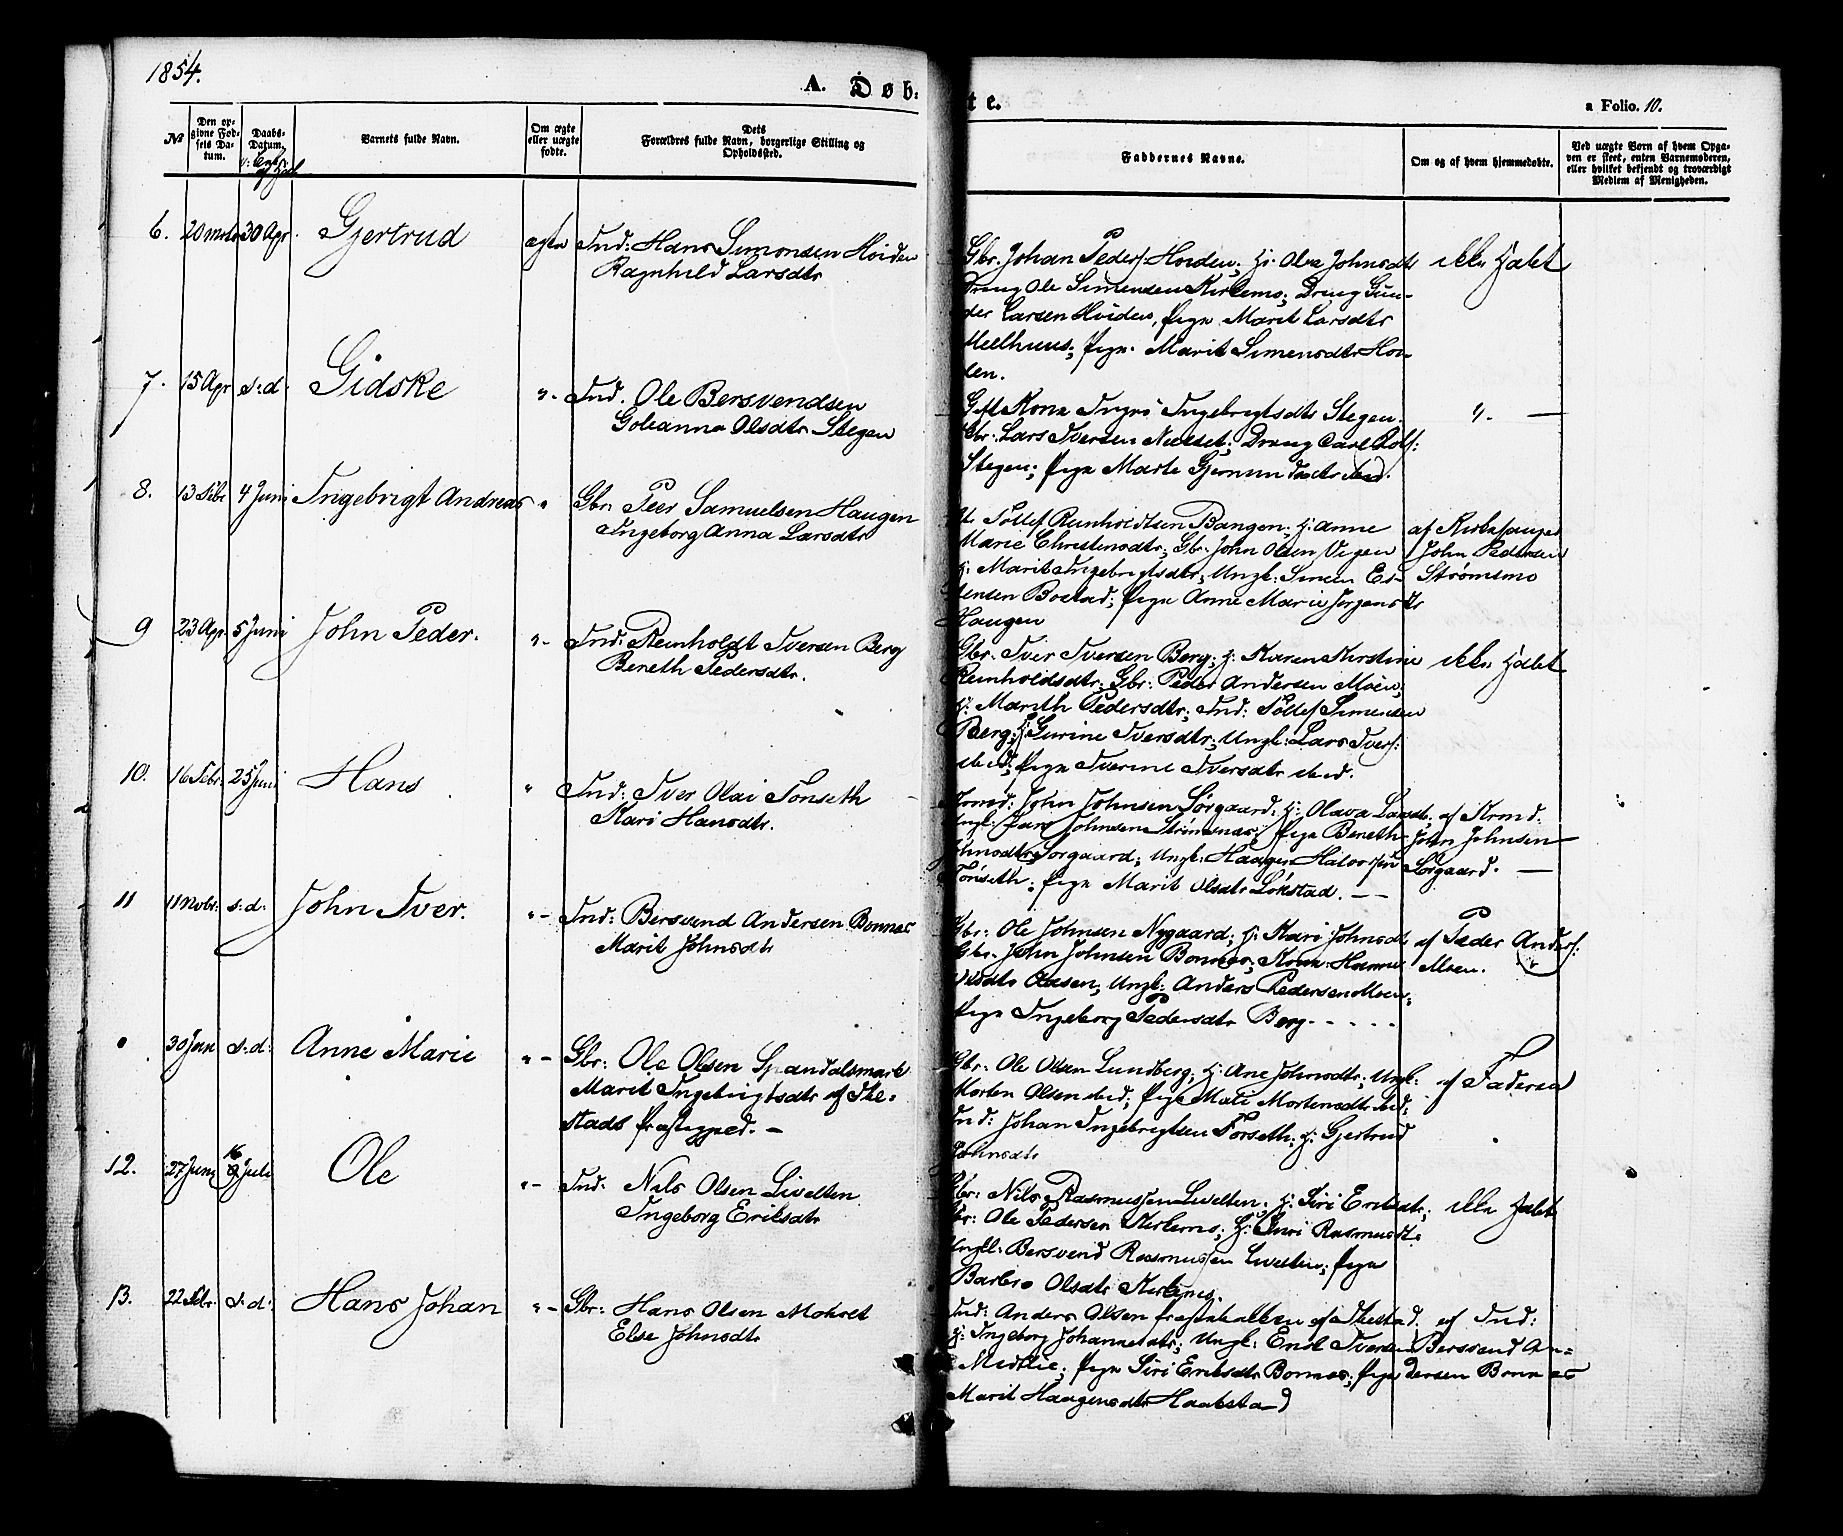 1854.
A. Døb=
te.
a Folio. 10.
№
Den op-
givne Fød-
sels Da-
tum.
Daabs-
Datum.
Barnets fulde Navn.
Om ægte
eller uægte
fødte.
Dets
Forældres fulde Navn, borgerlige Stilling og
Opholdssted.
Faddernes Navne.
Om og af hvem hjemmedøbte.
Ved uægte Børn af hvem Opga-
ven er skeet, enten Barnemoderen,
eller hvilket bekjendt og troværdigt
Medlem af Menigheden.
6. 20 30 Apr. Gjertrud ægte Ind: Hans Simonsen Hoiden
Ragnhild Larsdtr
Gbr. Johan Peders. Hoiden; H: Olea Johnsdtr
Dreng Ole Simensen Kirkemo; Dreng Gun-
der Larsen Hoiden, Pige Marit Larsdtr
Meelhuus; Pige. Marit Simensdtr Hoi-
den.
ikke
7. 15 Apr s:d. Gidske "- Ind. Ole Bersvendsen
Goleanna Olsdtr Stegen
Kone Ingri Ingebrigtsdtr Stegen.
Gbr: Lars Iversen; Dreng Carl
Stegen; Pige Marte
". —
8. 13 Febr 4 Juni Ingebrigt Andreas " Gbr. Peer Samuelsen Haugen
Ingeborg Anna Larsdtr
Tollef Reinholdtsen Bangen; H: Anne
Marie Christensdtr; Gbr. John Olsen Vigen
H: Marit Ingebrigtsdtr; Ungk: Simen Es-
tensen Bostad; Pige Anne Marie Jørgensdtr
Haugen
af Kirkesanger
John Pedersen
Strømsmo
9 23 Apr 5 Juni John Peder. "- Ind: Reinholdt Iversen Berg
Bereth Pedersdtr.
Gbr. Iver Iversen Berg; H: Karen Kirstine
Reinholdsdtr; Gbr: Peder Andersen Moen;
H: Marith Pedersdtr; Ind: Tollef Simensen
Berg; H: Gurine Iversdtr; Ungk: Lars Ivers:
ibid; Pige Iverine Iversdtr ibid.
ikke
10. 16 Febr. 25 Juni Hans " Ind: Iver Olai Tonseth
Kari Hansdtr.
John Johnsen Sørgaard. H: Olava Larsdtr.
Ungk: Johnsen Strømsnæs; Pige Bereth
Johnsdtr Sørgaard; Ungk: Haagen Halvorsen
Tonseth; Pige Marit Olsdtr Løkstad. — —
af Krmd.
John Johnsen
Sørgaard. —
11 11 Novbr: s:d: John Iver. "- Ind: Bersvend Andersen Bonnæs
Marit Johnsdtr
Gbr: Ole Johnsen Nygaard; H: Kari Johnsdtr
Gbr. John Johnsen Bonnæs; Kone: Hanne
Olsdtr Aasen; Ungk: Anders Pedersen Moen;
Pige Ingeborg Pedersdtr Berg. - - - -
af Peder Anders:
Moen.
30 Jan s:d: Anne Marie "- Gbr: Ole Olsen Spandalsmark
Marit Ingebrigtsdtr af Ike-
stads Præstegjeld. —
Gbr: Ole Olsen Lundberg; H: Ane Johnsdtr; Ungk:
Morten Olsen ibid; Pige Mali Mortensdtr ibid;
Ind: Johan Ingebrigtsen Forseth; H: Gjertrud
Johnsdtr
af Faderen
12. 27 Juni 16 Juli Ole "- Ind. Nils Olsen Livelten
Ingeborg Eriksdtr
Gbr: Nils Rasmussen Livelten; H: Siri Eriksdtr;
Gbr: Ole Pedersen Kirkemo; H: Guri Rasmusdtr.
Ungk: Bersvend Rasmussen Livelten; Pige
Barbro Olsdtr Kirkemo.
ikke
13. 22 Febr. s:d: Hans Johan "- Gbr: Hans Olsen Mokret
Else Johnsdtr
Ind: Anders Olsen af
H: Ingeborg Johannesdtr; Ungk: Enok Iversen
Midtlie; Pige Siri Eriksdtr Bonnæs; Pige
Marit Haagensdtr Haabstad
af Ind:
Bersvend An-
dersen Bonnæs